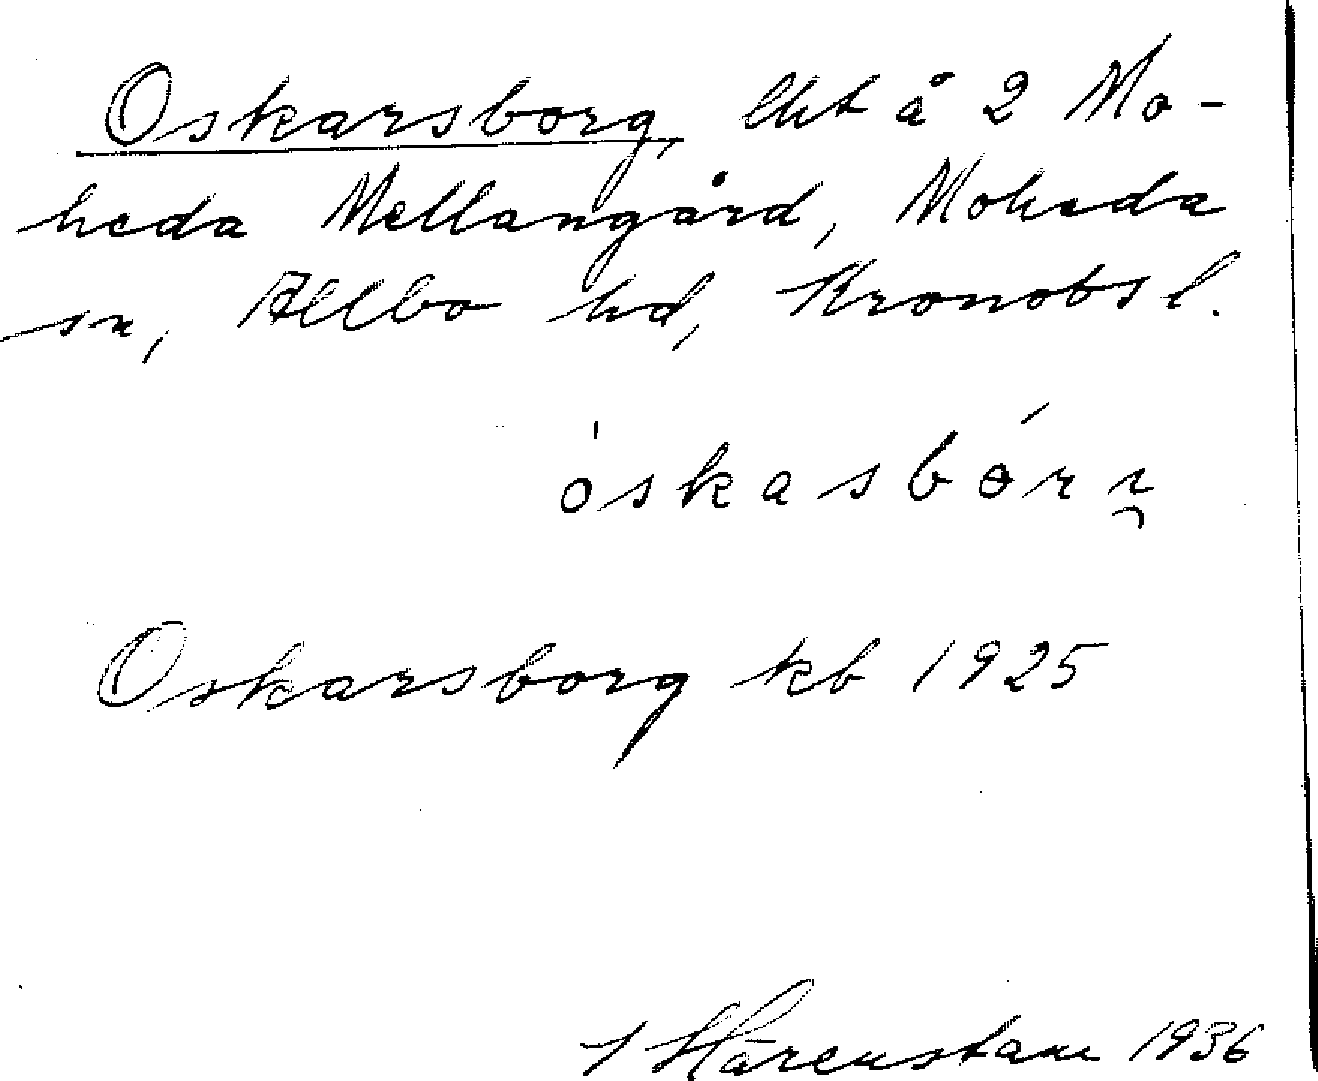 Oskarsborg, lht å 2 Mo-
heda Mellangård, Moheda
sn, Allbo hd, Kronobs l.
óskasbórꞅ
Oskarsborg kb 1925
Hårenstam 1936